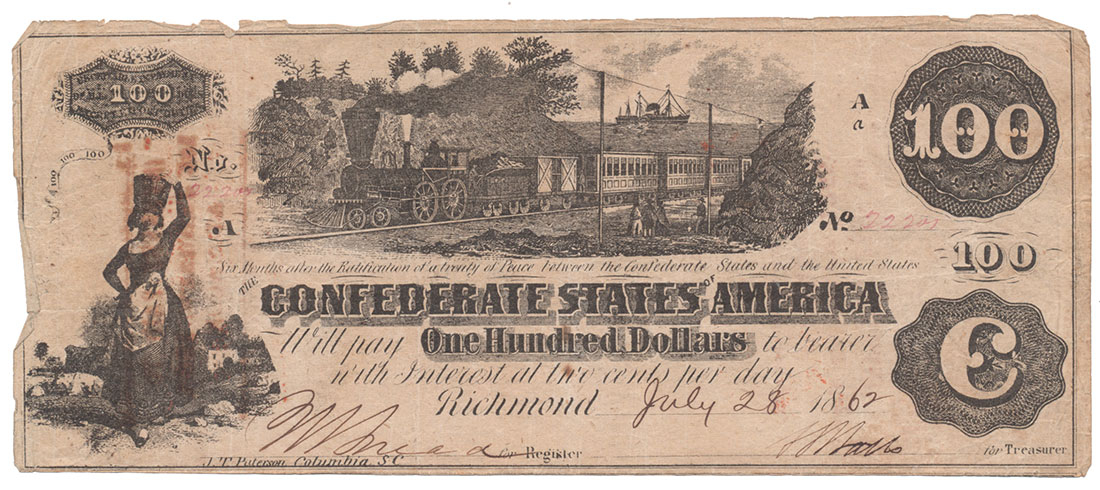 100
100
A
a
100 100 100
No.
A
No
Six Months after the Ratification of a treaty of Peace between the Confederate States and the United States
100
THE CONFEDERATE STATES OF AMERICA
Will pay One Hundred Dollars to bearer
with Interest at two cents per day
C
Richmond July 28 1862
for Register
for Treasurer
J. T. Paterson, Columbia, S.C.